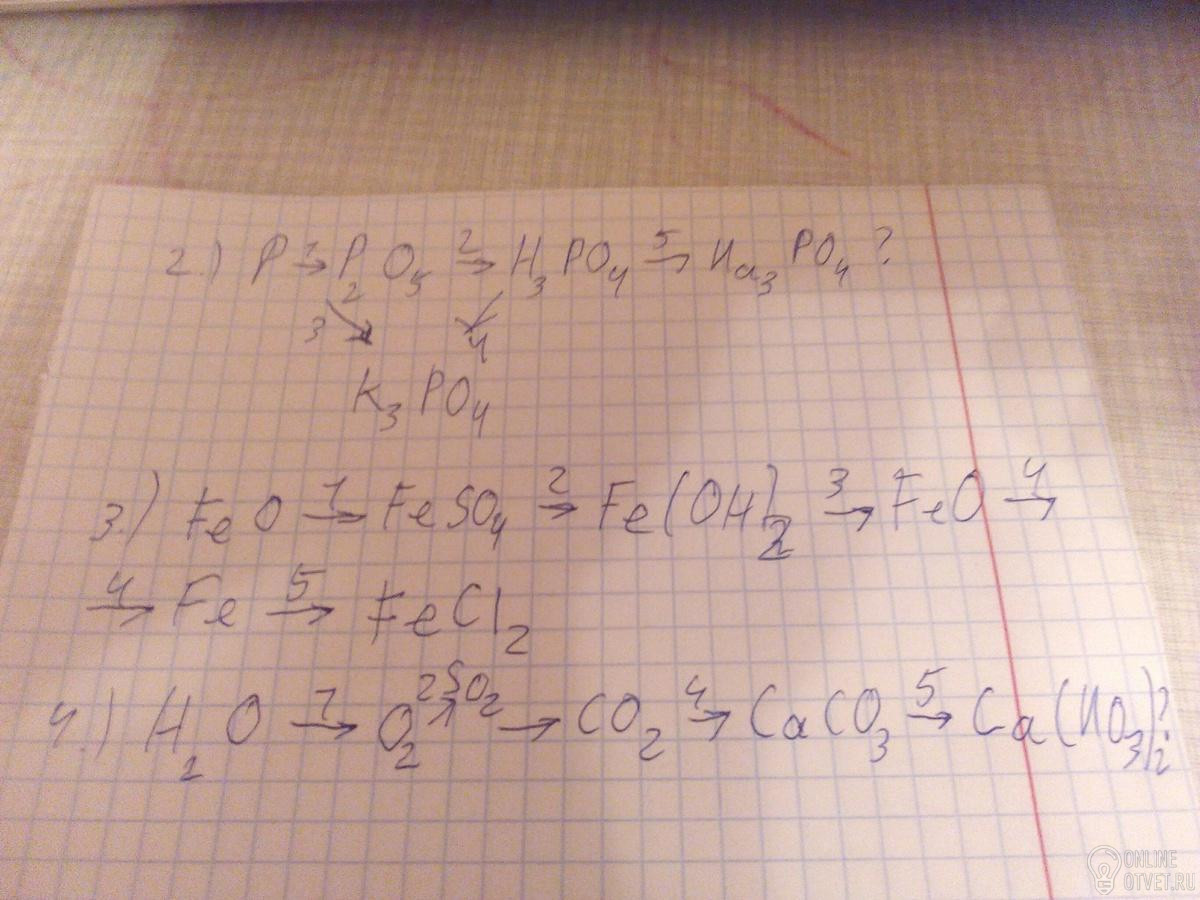 2.) P 1→ P2O5 2→ H3PO4 5→ Na3PO4?
3↘ ↙4
K3PO4
3.) FeO 1→ FeSO4 2→ Fe(OH)2 3→ FeO 4→
4→ Fe 5→ FeCl2
4.) H2O 1→ O2 2↗ SO2 → CO2 4→ CaCO3 5→ Ca(NO3)2?
ONLINE
OTVET.RU